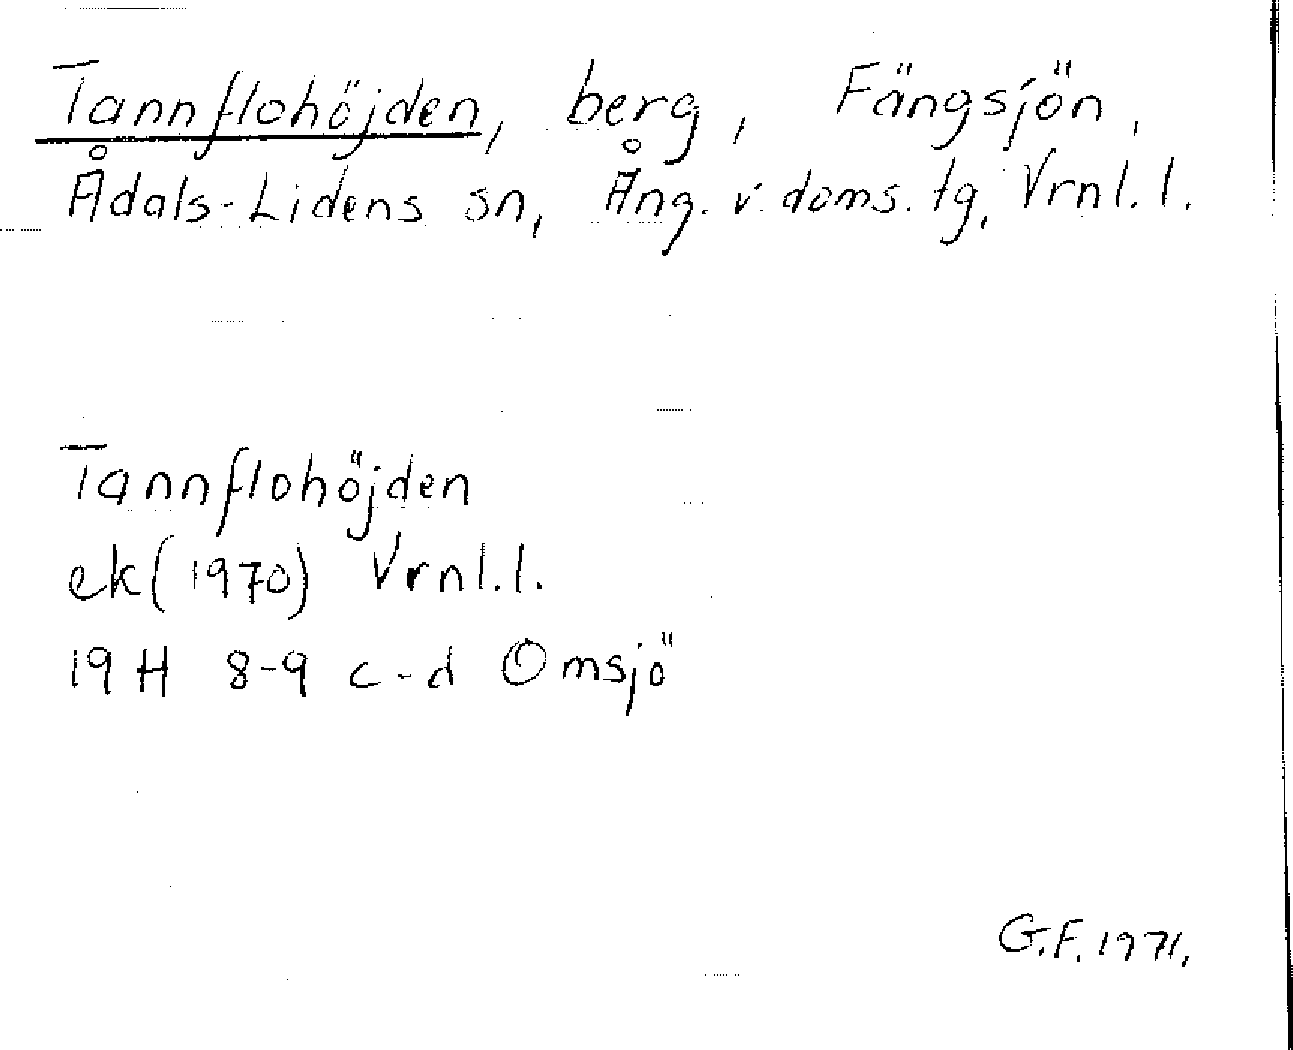 Tannflohöjden, berg, Fängsjön,
Ådals-Lidens sn, Ång. v. doms. tg, Vrnl. l.
Tannflohöjden
ek (1970) Vrnl. l.
19 H 8-9 c-d Omsjö
G.F. 1971.